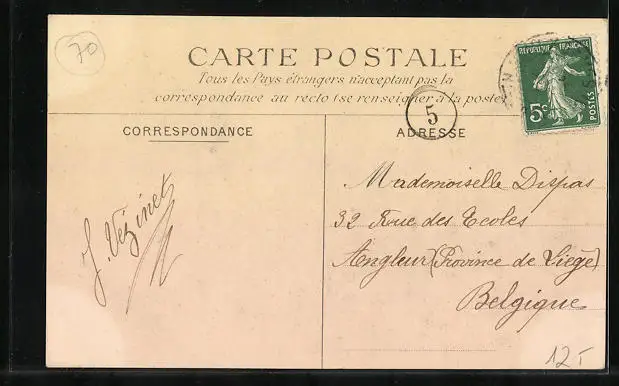 70
CARTE POSTALE
Tous les Pays étrangers n'acceptant pas la
correspondance au recto (se renseigner à la poste)
REPUBLIQUE FRANÇAISE
5c
POSTES
5
CORRESPONDANCE
ADRESSE
J. Vézinet
Mademoiselle Dispas
32 Rue des Ecoles
Angleur (Province de Liège)
Belgique